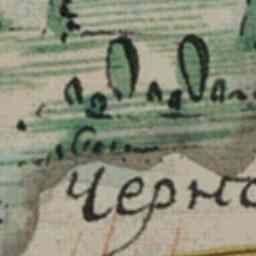 Черно